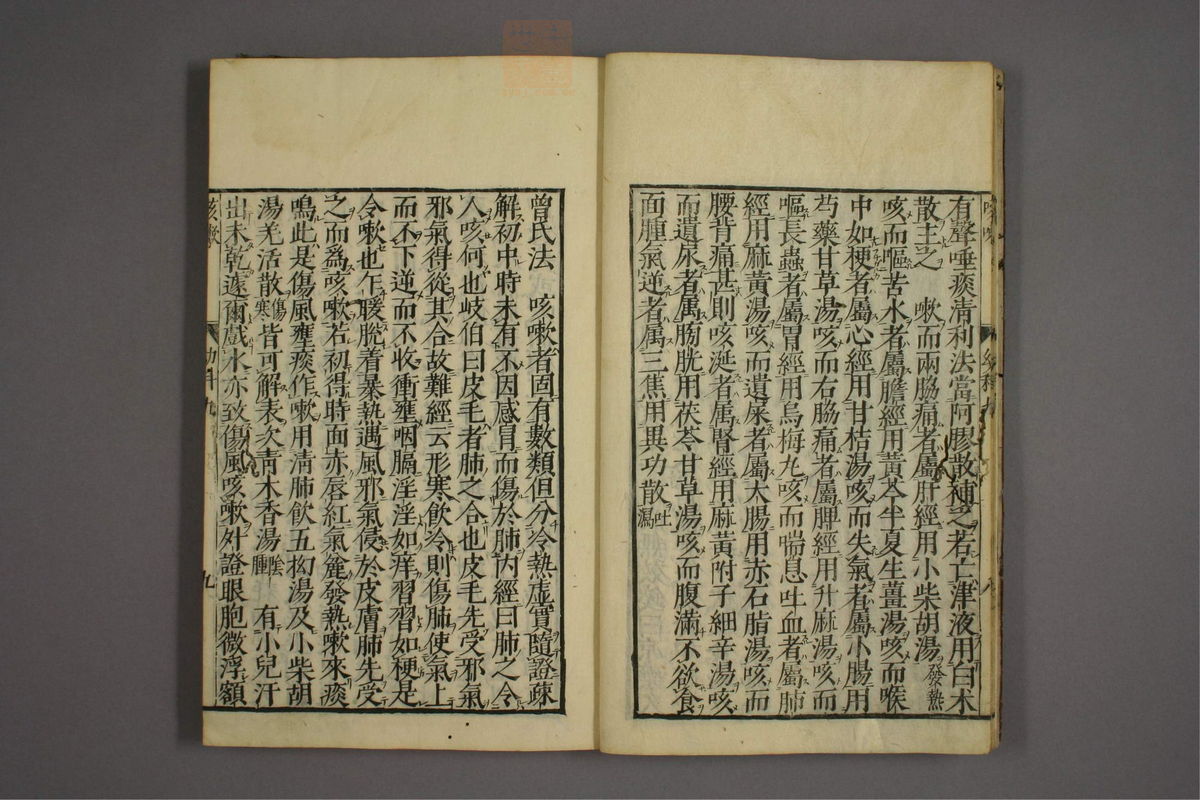 有聲唾痰清利法當阿膠散補之若亡津液用白木
散主之　嗽而兩脇痛者屬肝經用小柴胡湯發熱
咳而嘔苦水者屬膽經用黃芩半夏生薑湯咳而喉
中如梗者屬心經用甘桔湯咳而失氣者屬小腸用
芍藥甘草湯咳而右脇痛者屬脾經用升麻湯咳而
嘔長蟲者屬胃經用烏梅丸咳而喘息吐血者屬肺
經用麻黃湯咳而遺屎者屬大腸用赤石脂湯咳而
腰背痛甚則咳涎者属腎經用麻黃附子細辛湯咳
而遺尿者属膀胱用茯苓甘草湯咳而腹滿不欲食
面腫氣逆者属三焦用異功散吐瀉
曾氏法　咳嗽者固有數類但分冷熱虛實隨證疎
解初中時未有不因感冒而傷於肺內經曰肺之令
人咳何也岐伯曰皮毛者肺之合也皮毛先受邪氣
邪氣得從其合故難經云形寒飲冷則傷肺使氣上
而不下逆而不收衝壅咽膈淫淫如痒習習如梗是
令嗽也乍暖脫着暴熱遇風邪氣侵於皮膚肺先受
之而為咳嗽若初得時面赤唇紅氣麄發熱嗽來痰
鳴此是傷風壅痰作嗽用清肺飲五拗湯及小柴胡
湯羌活散傷寒皆可解表次青木香湯陰腫　有小兒汗
出未乾遽爾戲水亦致傷風咳嗽外證眼胞微浮額
咳嗽
幼科九
九